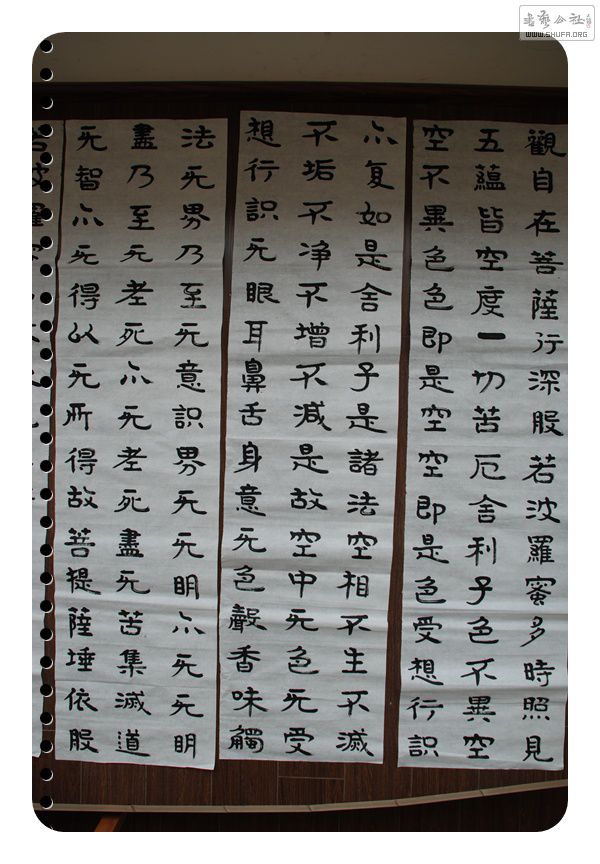 書藝公社
WWW.SHUFA.ORG
觀自在菩薩行深般若波羅蜜多時照見
五蘊皆空度一切苦厄舍利子色不異空
空不異色色即是空空即是色受想行識
亦复如是舍利子是諸法空相不生不滅
不垢不净不增不減是故空中无色无受
想行識无眼耳鼻舌身意无色聲香味觸
法无眼界乃至无意識界无无明亦无无明
盡乃至无老死亦无老死盡无苦集滅道
无智亦无得以无所得故菩提薩埵依般